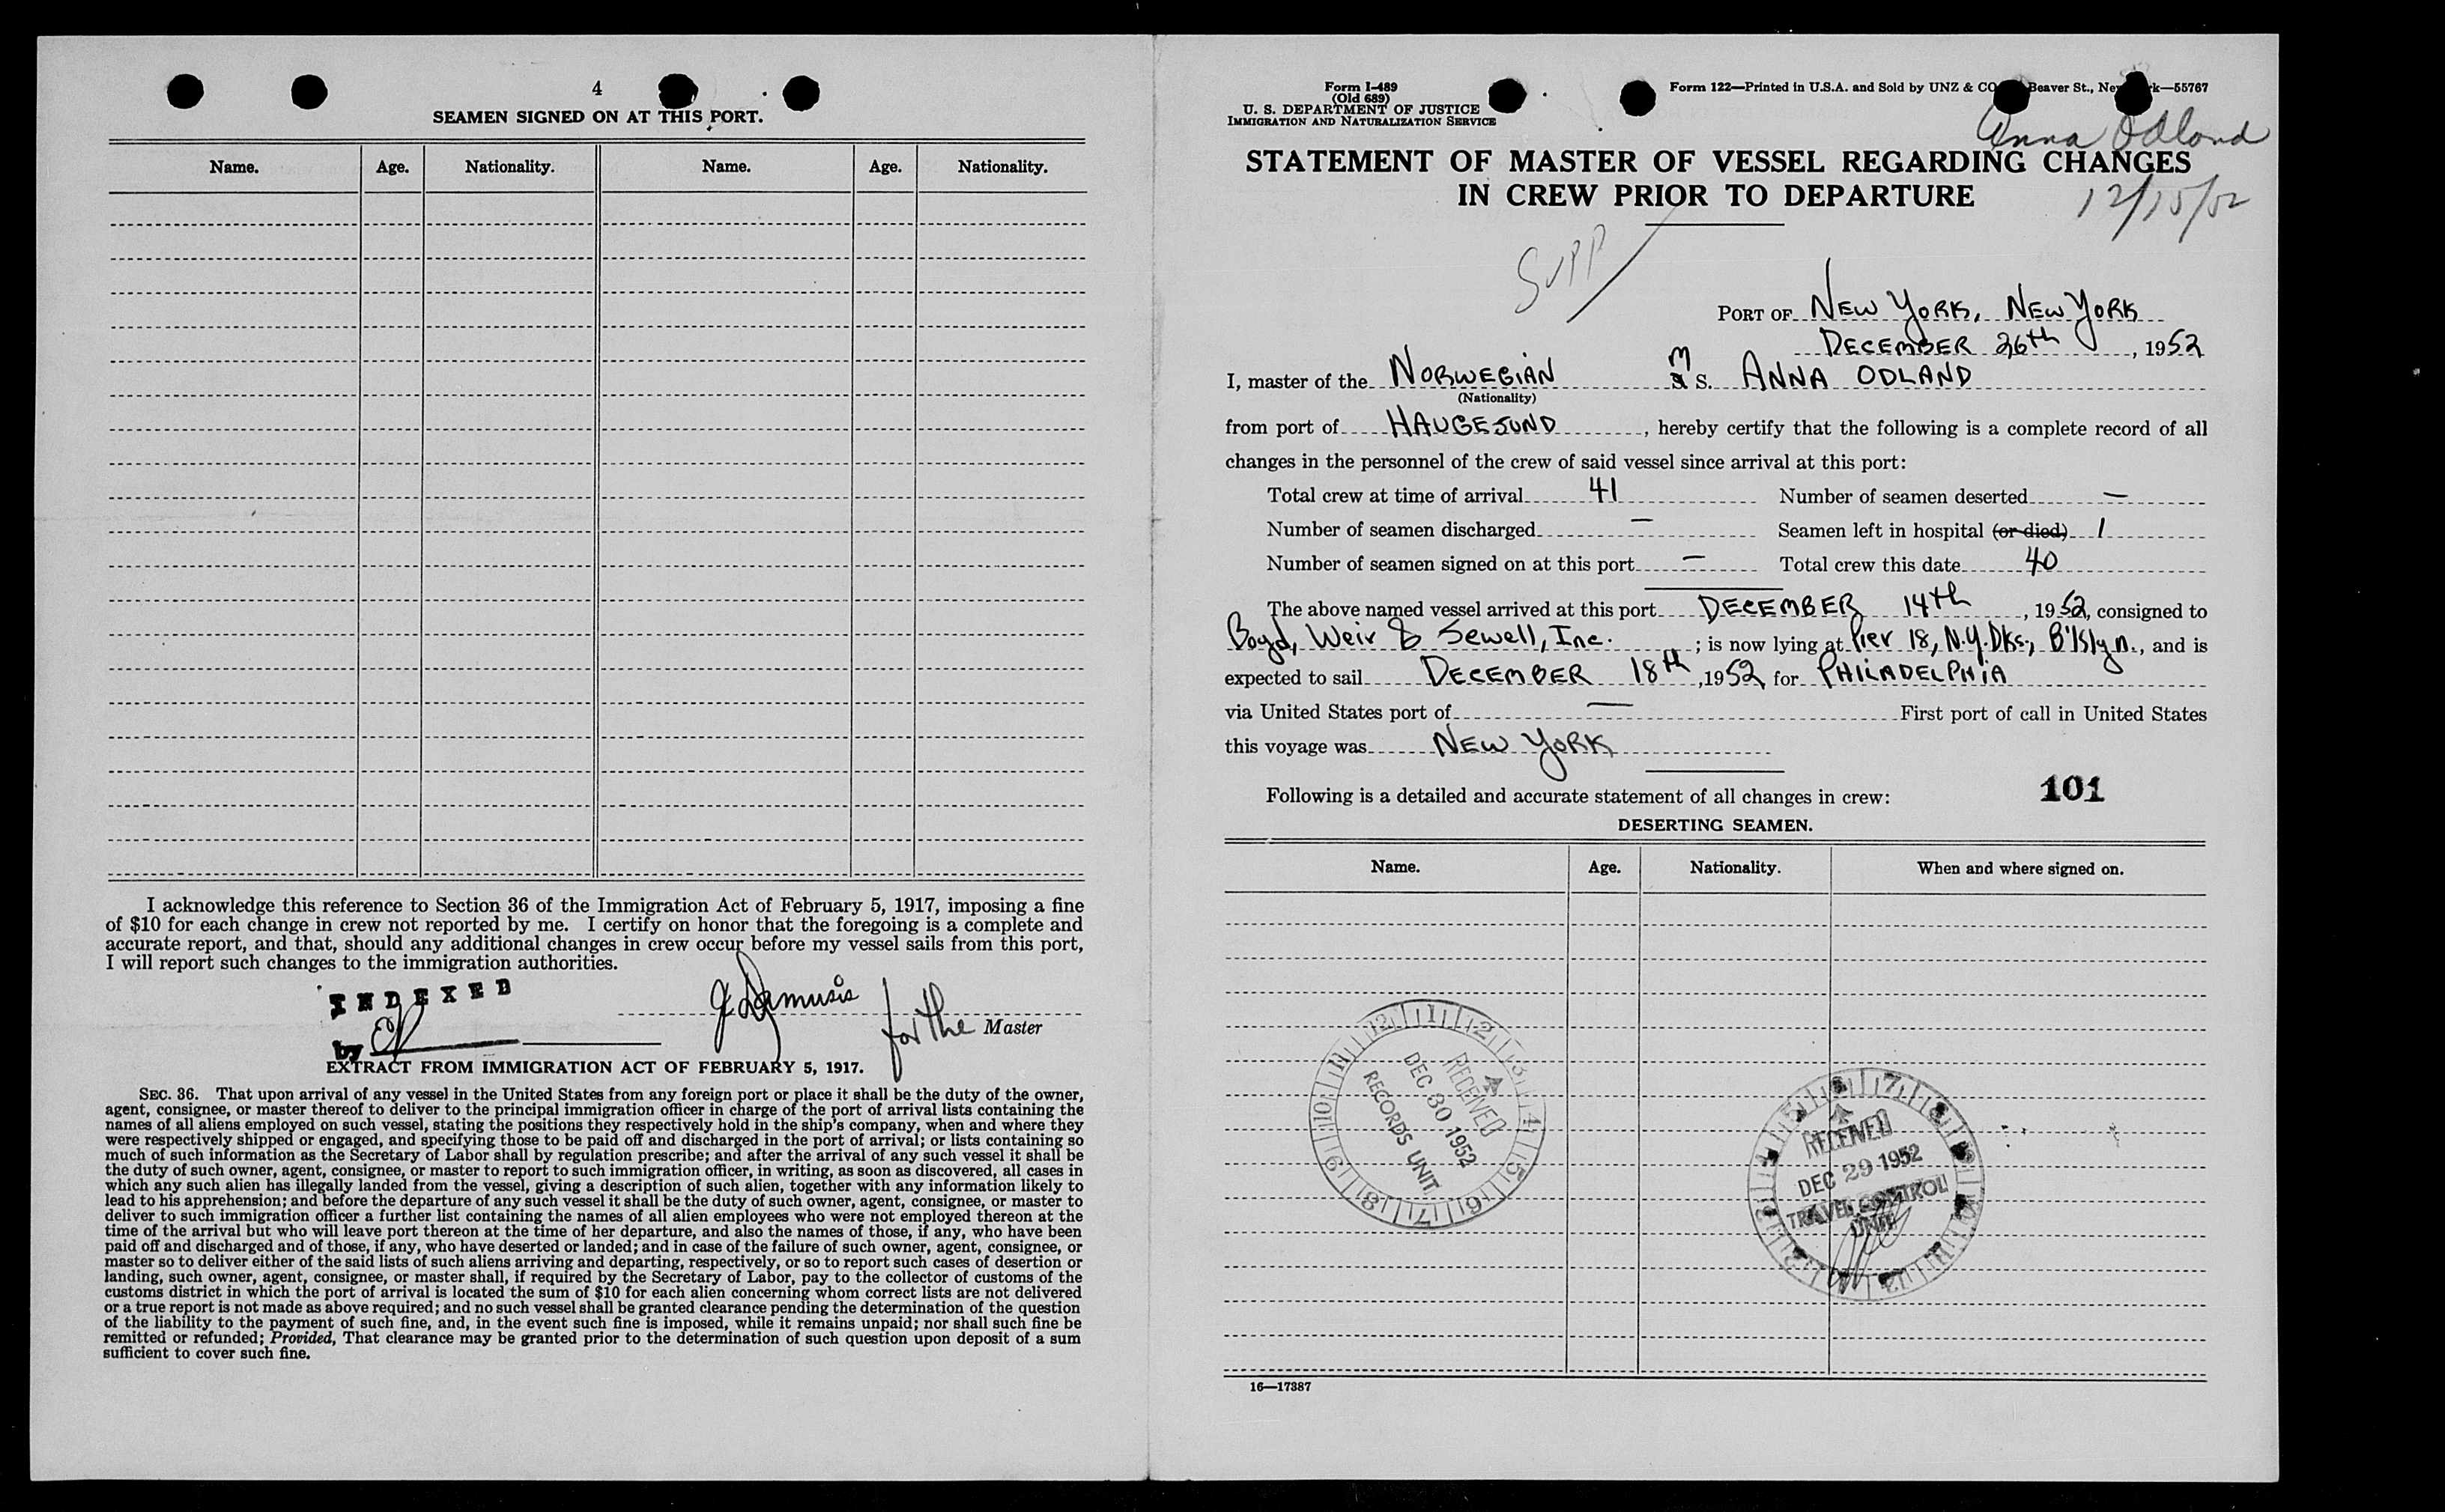 4
SEAMEN SIGNED ON AT THIS PORT.
Name. Age. Nationality. Name. Age. Nationality.
I acknowledge this reference to Section 36 of the Immigration Act of February 5, 1917, imposing a fine
of $10 for each change in crew not reported by me. I certify on honor that the foregoing is a complete and
accurate report, and that, should any additional changes in crew occur before my vessel sails from this port,
I will report such changes to the immigration authorities.
INDEXED
by
for the Master
EXTRACT FROM IMMIGRATION ACT OF FEBRUARY 5, 1917.
SEC. 36. That upon arrival of any vessel in the United States from any foreign port or place it shall be the duty of the owner,
agent, consignee, or master thereof to deliver to the principal immigration officer in charge of the port of arrival lists containing the
names of all aliens employed on such vessel, stating the positions they respectively hold in the ship's company, when and where they
were respectively shipped or engaged, and specifying those to be paid off and discharged in the port of arrival; or lists containing so
much of such information as the Secretary of Labor shall by regulation prescribe; and after the arrival of any such vessel it shall be
the duty of such owner, agent, consignee, or master to report to such immigration officer, in writing, as soon as discovered, all cases in
which any such alien has illegally landed from the vessel, giving a description of such alien, together with any information likely to
lead to his apprehension; and before the departure of any such vessel it shall be the duty of such owner, agent, consignee, or master to
deliver to such immigration officer a further list containing the names of all alien employees who were not employed thereon at the
time of the arrival but who will leave port thereon at the time of her departure, and also the names of those, if any, who have been
paid off and discharged and of those, if any, who have deserted or landed; and in case of the failure of such owner, agent, consignee, or
master so to deliver either of the said lists of such aliens arriving and departing, respectively, or so to report such cases of desertion or
landing, such owner, agent, consignee, or master shall, if required by the Secretary of Labor, pay to the collector of customs of the
customs district in which the port of arrival is located the sum of $10 for each alien concerning whom correct lists are not delivered
or a true report is not made as above required; and no such vessel shall be granted clearance pending the determination of the question
of the liability to the payment of such fine, and, in the event such fine is imposed, while it remains unpaid; nor shall such fine be
remitted or refunded; Provided, That clearance may be granted prior to the determination of such question upon deposit of a sum
sufficient to cover such fine.
Form I-489
(Old 689)
U. S. DEPARTMENT OF JUSTICE
IMMIGRATION AND NATURALIZATION SERVICE
Form 122—Printed in U.S.A. and Sold by UNZ & CO Beaver St., New k—55767
Anna Odland
STATEMENT OF MASTER OF VESSEL REGARDING CHANGES
IN CREW PRIOR TO DEPARTURE
12/15/52
SUPP
PORT OF NEW YORK, NEW YORK
DECEMBER 26th, 1952
I, master of the NORWEGIAN M S. ANNA ODLAND
(Nationality)
from port of HAUGESUND, hereby certify that the following is a complete record of all
changes in the personnel of the crew of said vessel since arrival at this port:
Total crew at time of arrival 41 Number of seamen deserted —
Number of seamen discharged — Seamen left in hospital (or died) 1
Number of seamen signed on at this port — Total crew this date 40
The above named vessel arrived at this port DECEMBER 14th, 1952, consigned to
Boyd, Weir & Sewell, Inc.; is now lying at Pier 18, N.Y. Dks., B'klyn., and is
expected to sail DECEMBER 18th, 1952, for PHILADELPHIA
via United States port of — First port of call in United States
this voyage was NEW YORK
Following is a detailed and accurate statement of all changes in crew:
101
DESERTING SEAMEN.
Name. Age. Nationality. When and where signed on.
RECEIVED
DEC 30 1952
RECORDS UNIT
RECEIVED
DEC 29 1952
TRAVEL CONTROL
UNIT
16—17387